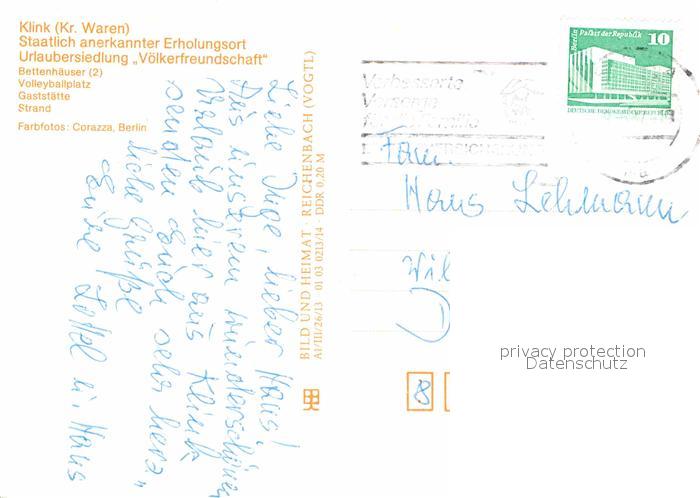 Klink (Kr. Waren)
Staatlich anerkannter Erholungsort
Urlaubersiedlung „Völkerfreundschaft“
Bettenhäuser (2)
Volleyballplatz
Gaststätte
Strand
Farbfotos: Corazza, Berlin
Liebe Inge, lieber Hans!
Aus unserem wunderschönen
Urlaub hier aus Klink
senden Euch sehr herz„
liche Grüße
Eure u. Hans
BILD UND HEIMAT · REICHENBACH (VOGTL)
A1/III/26/13 01 03 0213/14 · DDR 0,20 M
Verbesserte
Vorsorge
Berlin Palast der Republik
10
DEUTSCHE DEMOKRATISCHE REPUBLIK
Fam.
Hans Lehmann
Wil
8
privacy protection
Datenschutz